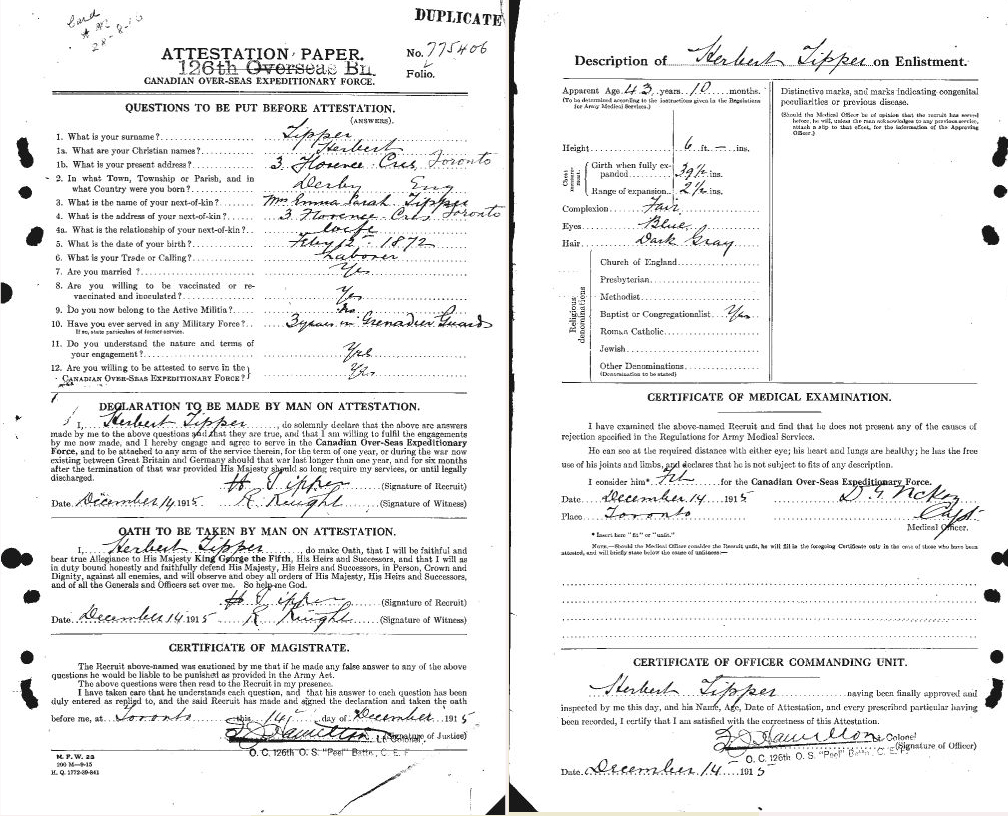 Card
28-8-16
DUPLICATE
ATTESTATION PAPER.
No. 775406
126th Overseas Bn.
Folio.
CANADIAN OVER-SEAS EXPEDITIONARY FORCE.
QUESTIONS TO BE PUT BEFORE ATTESTATION.
(ANSWERS).
1. What is your surname? Tipper
1a. What are your Christian names? Herbert
1b. What is your present address? 3 Florence Cres Toronto
2. In what Town, Township or Parish, and in
what Country were you born? Derby Eng
3. What is the name of your next-of-kin? Mrs Emma Sarah Tipper
4. What is the address of your next-of-kin? 3 Florence Cres Toronto
4a. What is the relationship of your next-of-kin? wife
5. What is the date of your birth? 1872
6. What is your Trade or Calling? Laborer
7. Are you married? Yes
8. Are you willing to be vaccinated or re-
vaccinated and inoculated? Yes
9. Do you now belong to the Active Militia? No
10. Have you ever served in any Military Force? 3 years in Grenadier Guards
If so, state particulars of former service.
11. Do you understand the nature and terms of
your engagement? Yes
12. Are you willing to be attested to serve in the
CANADIAN OVER-SEAS EXPEDITIONARY FORCE? Yes
DECLARATION TO BE MADE BY MAN ON ATTESTATION.
I, Herbert Tipper, do solemnly declare that the above are answers
made by me to the above questions and that they are true, and that I am willing to fulfil the engagements
by me now made, and I hereby engage and agree to serve in the Canadian Over-Seas Expeditionary
Force, and to be attached to any arm of the service therein, for the term of one year, or during the war now
existing between Great Britain and Germany should that war last longer than one year, and for six months
after the termination of that war provided His Majesty should so long require my services, or until legally
discharged.
H Tipper (Signature of Recruit)
Date December 14 1915 R Knight (Signature of Witness)
OATH TO BE TAKEN BY MAN ON ATTESTATION.
I, Herbert Tipper, do make Oath, that I will be faithful and
bear true Allegiance to His Majesty King George the Fifth, His Heirs and Successors, and that I will as
in duty bound honestly and faithfully defend His Majesty, His Heirs and Successors, in Person, Crown and
Dignity, against all enemies, and will observe and obey all orders of His Majesty, His Heirs and Successors,
and of all the Generals and Officers set over me. So help me God.
H Tipper (Signature of Recruit)
Date December 14 1915 R Knight (Signature of Witness)
CERTIFICATE OF MAGISTRATE.
The Recruit above-named was cautioned by me that if he made any false answer to any of the above
questions he would be liable to be punished as provided in the Army Act.
The above questions were then read to the Recruit in my presence.
I have taken care that he understands each question, and that his answer to each question has been
duly entered as replied to, and the said Recruit has made and signed the declaration and taken the oath
before me, at Toronto this 14 day of December 1915
Hamilton Lt Colonel (Signature of Justice)
O. C. 126th O. S. "Peel" Battn, C. E. F
M. F. W. 23
200 M-9-15
H. Q. 1772-39-841
Description of Herbert Tipper on Enlistment.
Apparent Age 43 years 10 months.
(To be determined according to the instructions given in the Regulations
for Army Medical Services.)
Height 6 ft. — ins.
Chest measurement.
Girth when fully ex-
panded 39½ ins.
Range of expansion 2½ ins.
Complexion Fair
Eyes Blue
Hair Dark Gray
Religious denominations
Church of England
Presbyterian
Methodist
Baptist or Congregationalist Yes
Roman Catholic
Jewish
Other Denominations
(Denomination to be stated)
Distinctive marks, and marks indicating congenital
peculiarities or previous disease.
(Should the Medical Officer be of opinion that the recruit has served
before, he will, unless the man acknowledges to any previous service,
attach a slip to that effect, for the information of the Approving
Officer.)
CERTIFICATE OF MEDICAL EXAMINATION.
I have examined the above-named Recruit and find that he does not present any of the causes of
rejection specified in the Regulations for Army Medical Services.
He can see at the required distance with either eye; his heart and lungs are healthy; he has the free
use of his joints and limbs, and declares that he is not subject to fits of any description.
I consider him* Fit for the Canadian Over-Seas Expeditionary Force.
Date December 14 1915 Capt
Place Toronto
Medical Officer.
* Insert here "fit" or "unfit."
NOTE.—Should the Medical Officer consider the Recruit unfit, he will fill in the foregoing Certificate only in the case of those who have been
attested, and will briefly state below the cause of unfitness:—
CERTIFICATE OF OFFICER COMMANDING UNIT.
Herbert Tipper having been finally approved and
inspected by me this day, and his Name, Age, Date of Attestation, and every prescribed particular having
been recorded, I certify that I am satisfied with the correctness of this Attestation.
Hamilton Lt Colonel (Signature of Officer)
O. C. 126th O. S. "Peel" Battn, C. E. F
Date December 14 1915